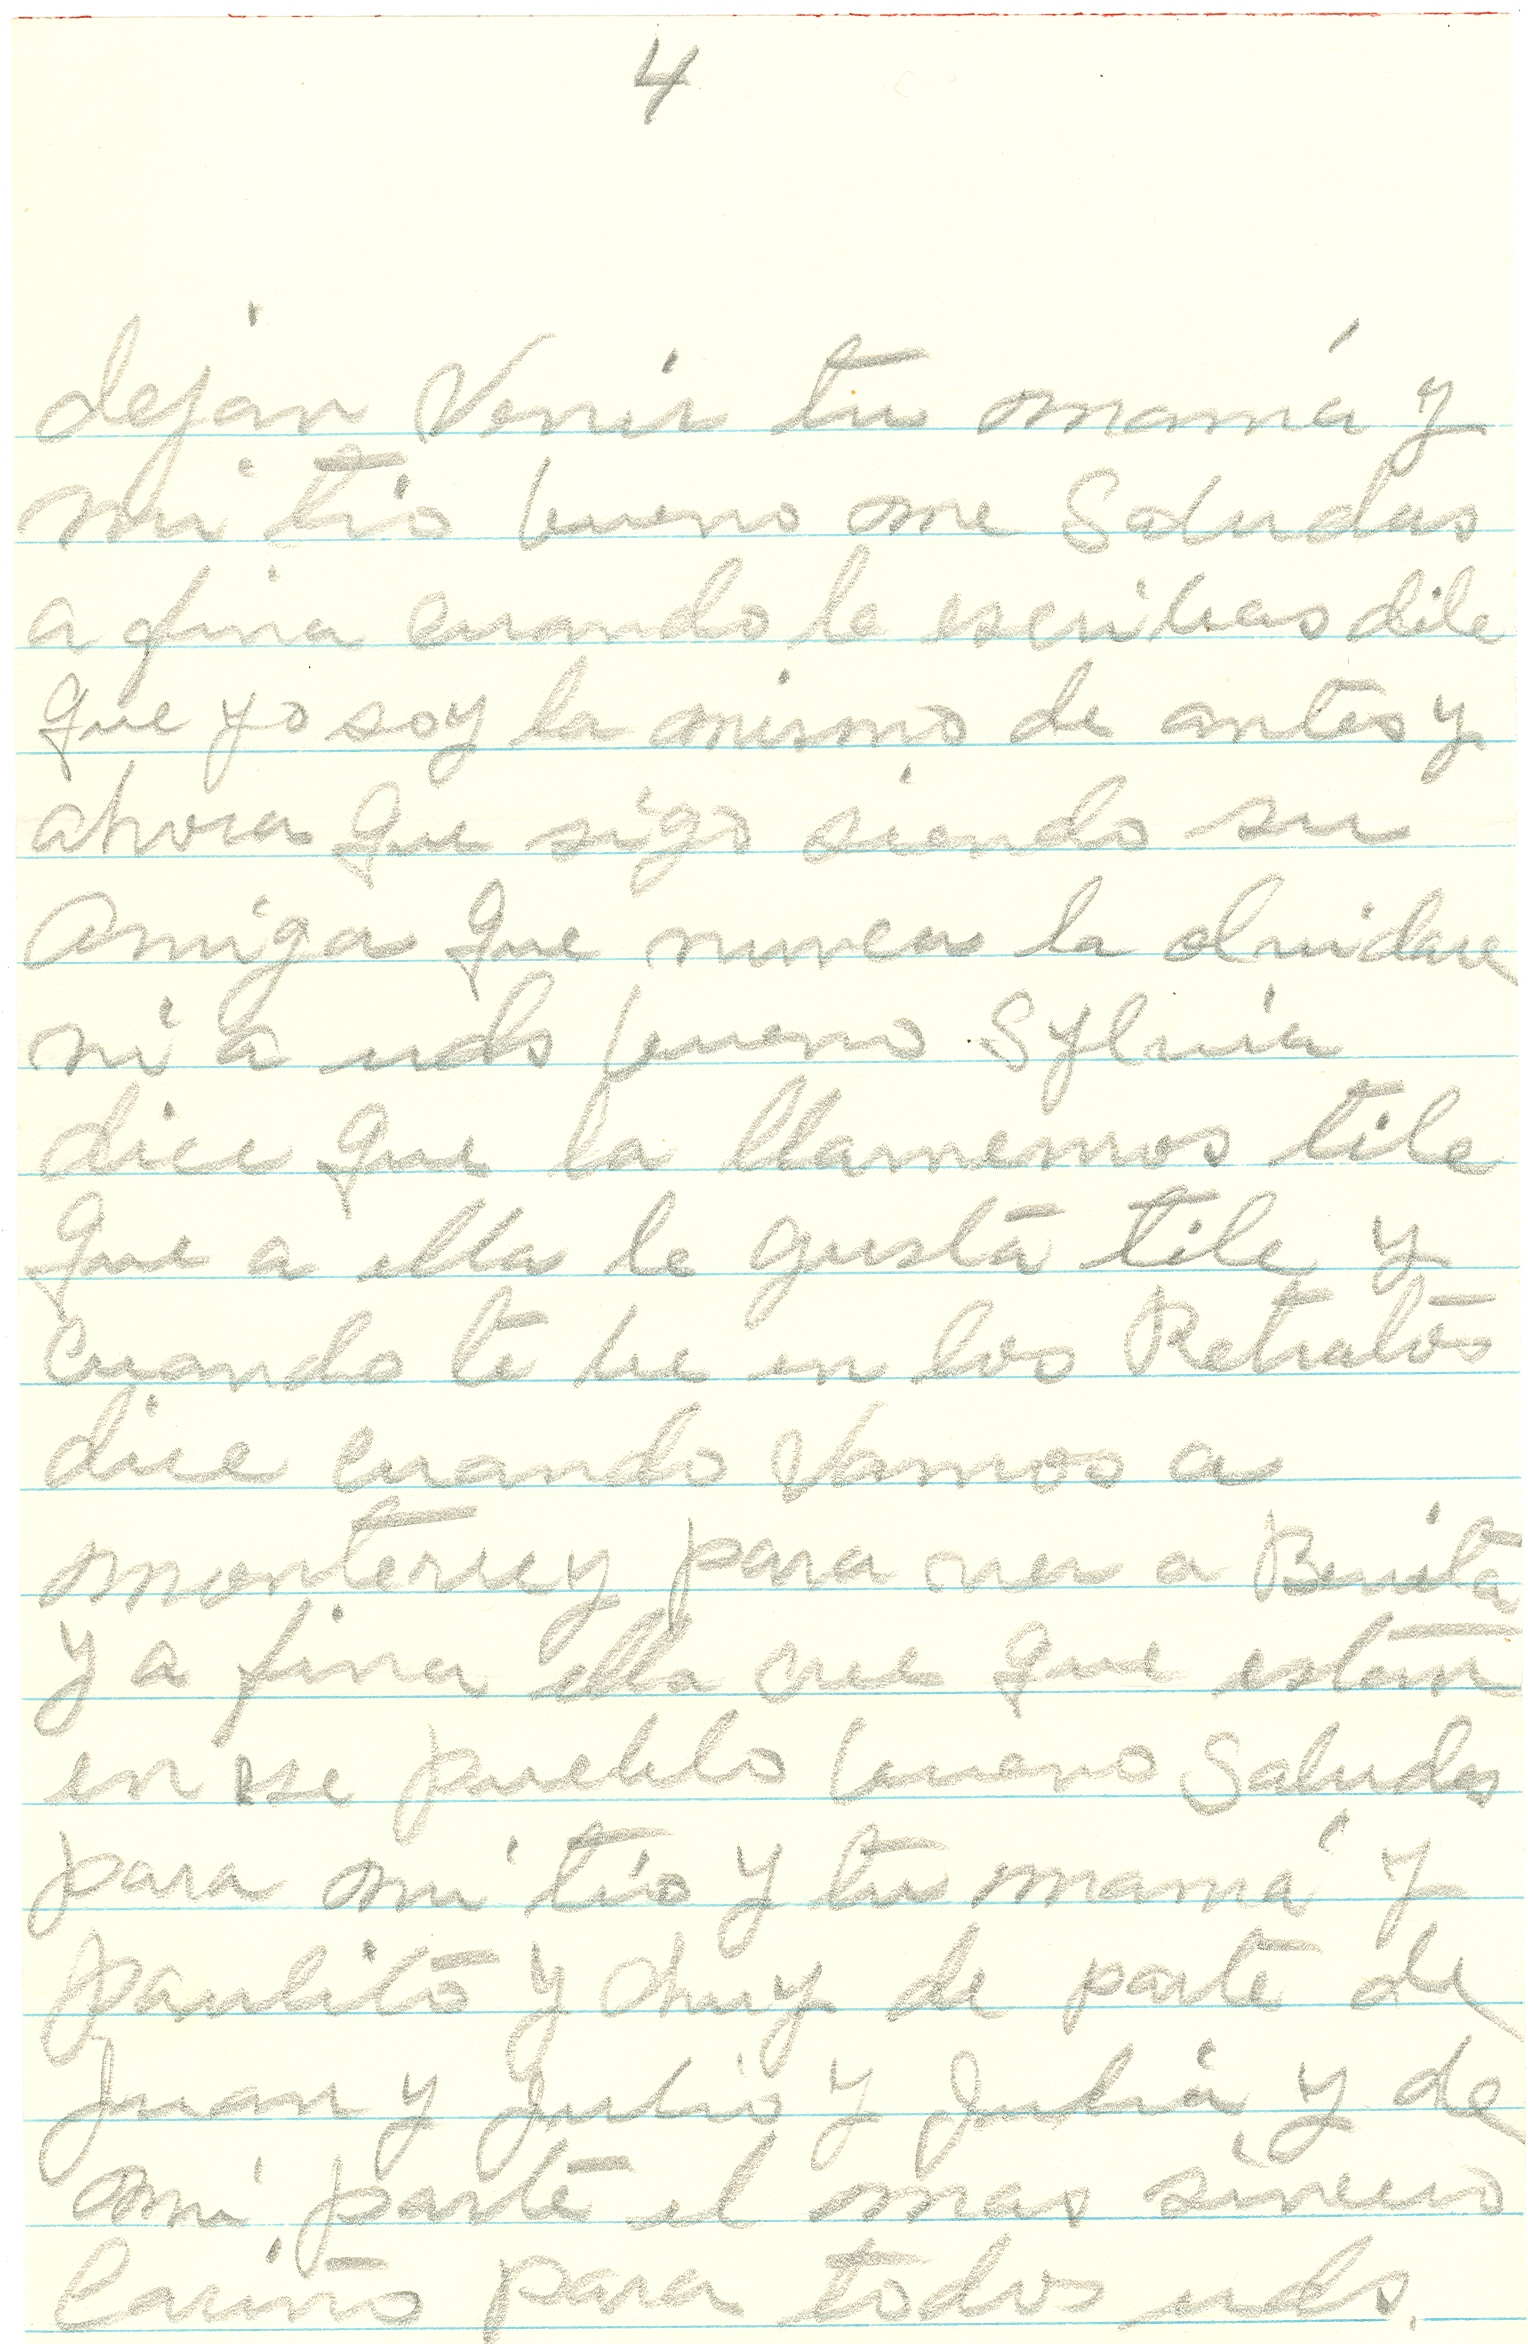 4
dejan Venir tu mamá y
mi tio bueno me Saludas
a fina cuando le escribas dile
que yo soy la mismo de antes y
ahora que sigo siendo su
Amiga que nunca la olvidare
ni a uds bueno Sylvia
dice que la llamemos tile
que a ella le gusta tile y
cuando te be en los Retratos
dice cuando Vamos a
monterrey para ver a Benita
y a fina ella cree que estan
en ese pueblo bueno Saludos
para mi tio y tu mamá y
paulito y chuy de parte de
Juan y Julio y Julia y de
mi parte el mas sincero
Cariño para todos uds.